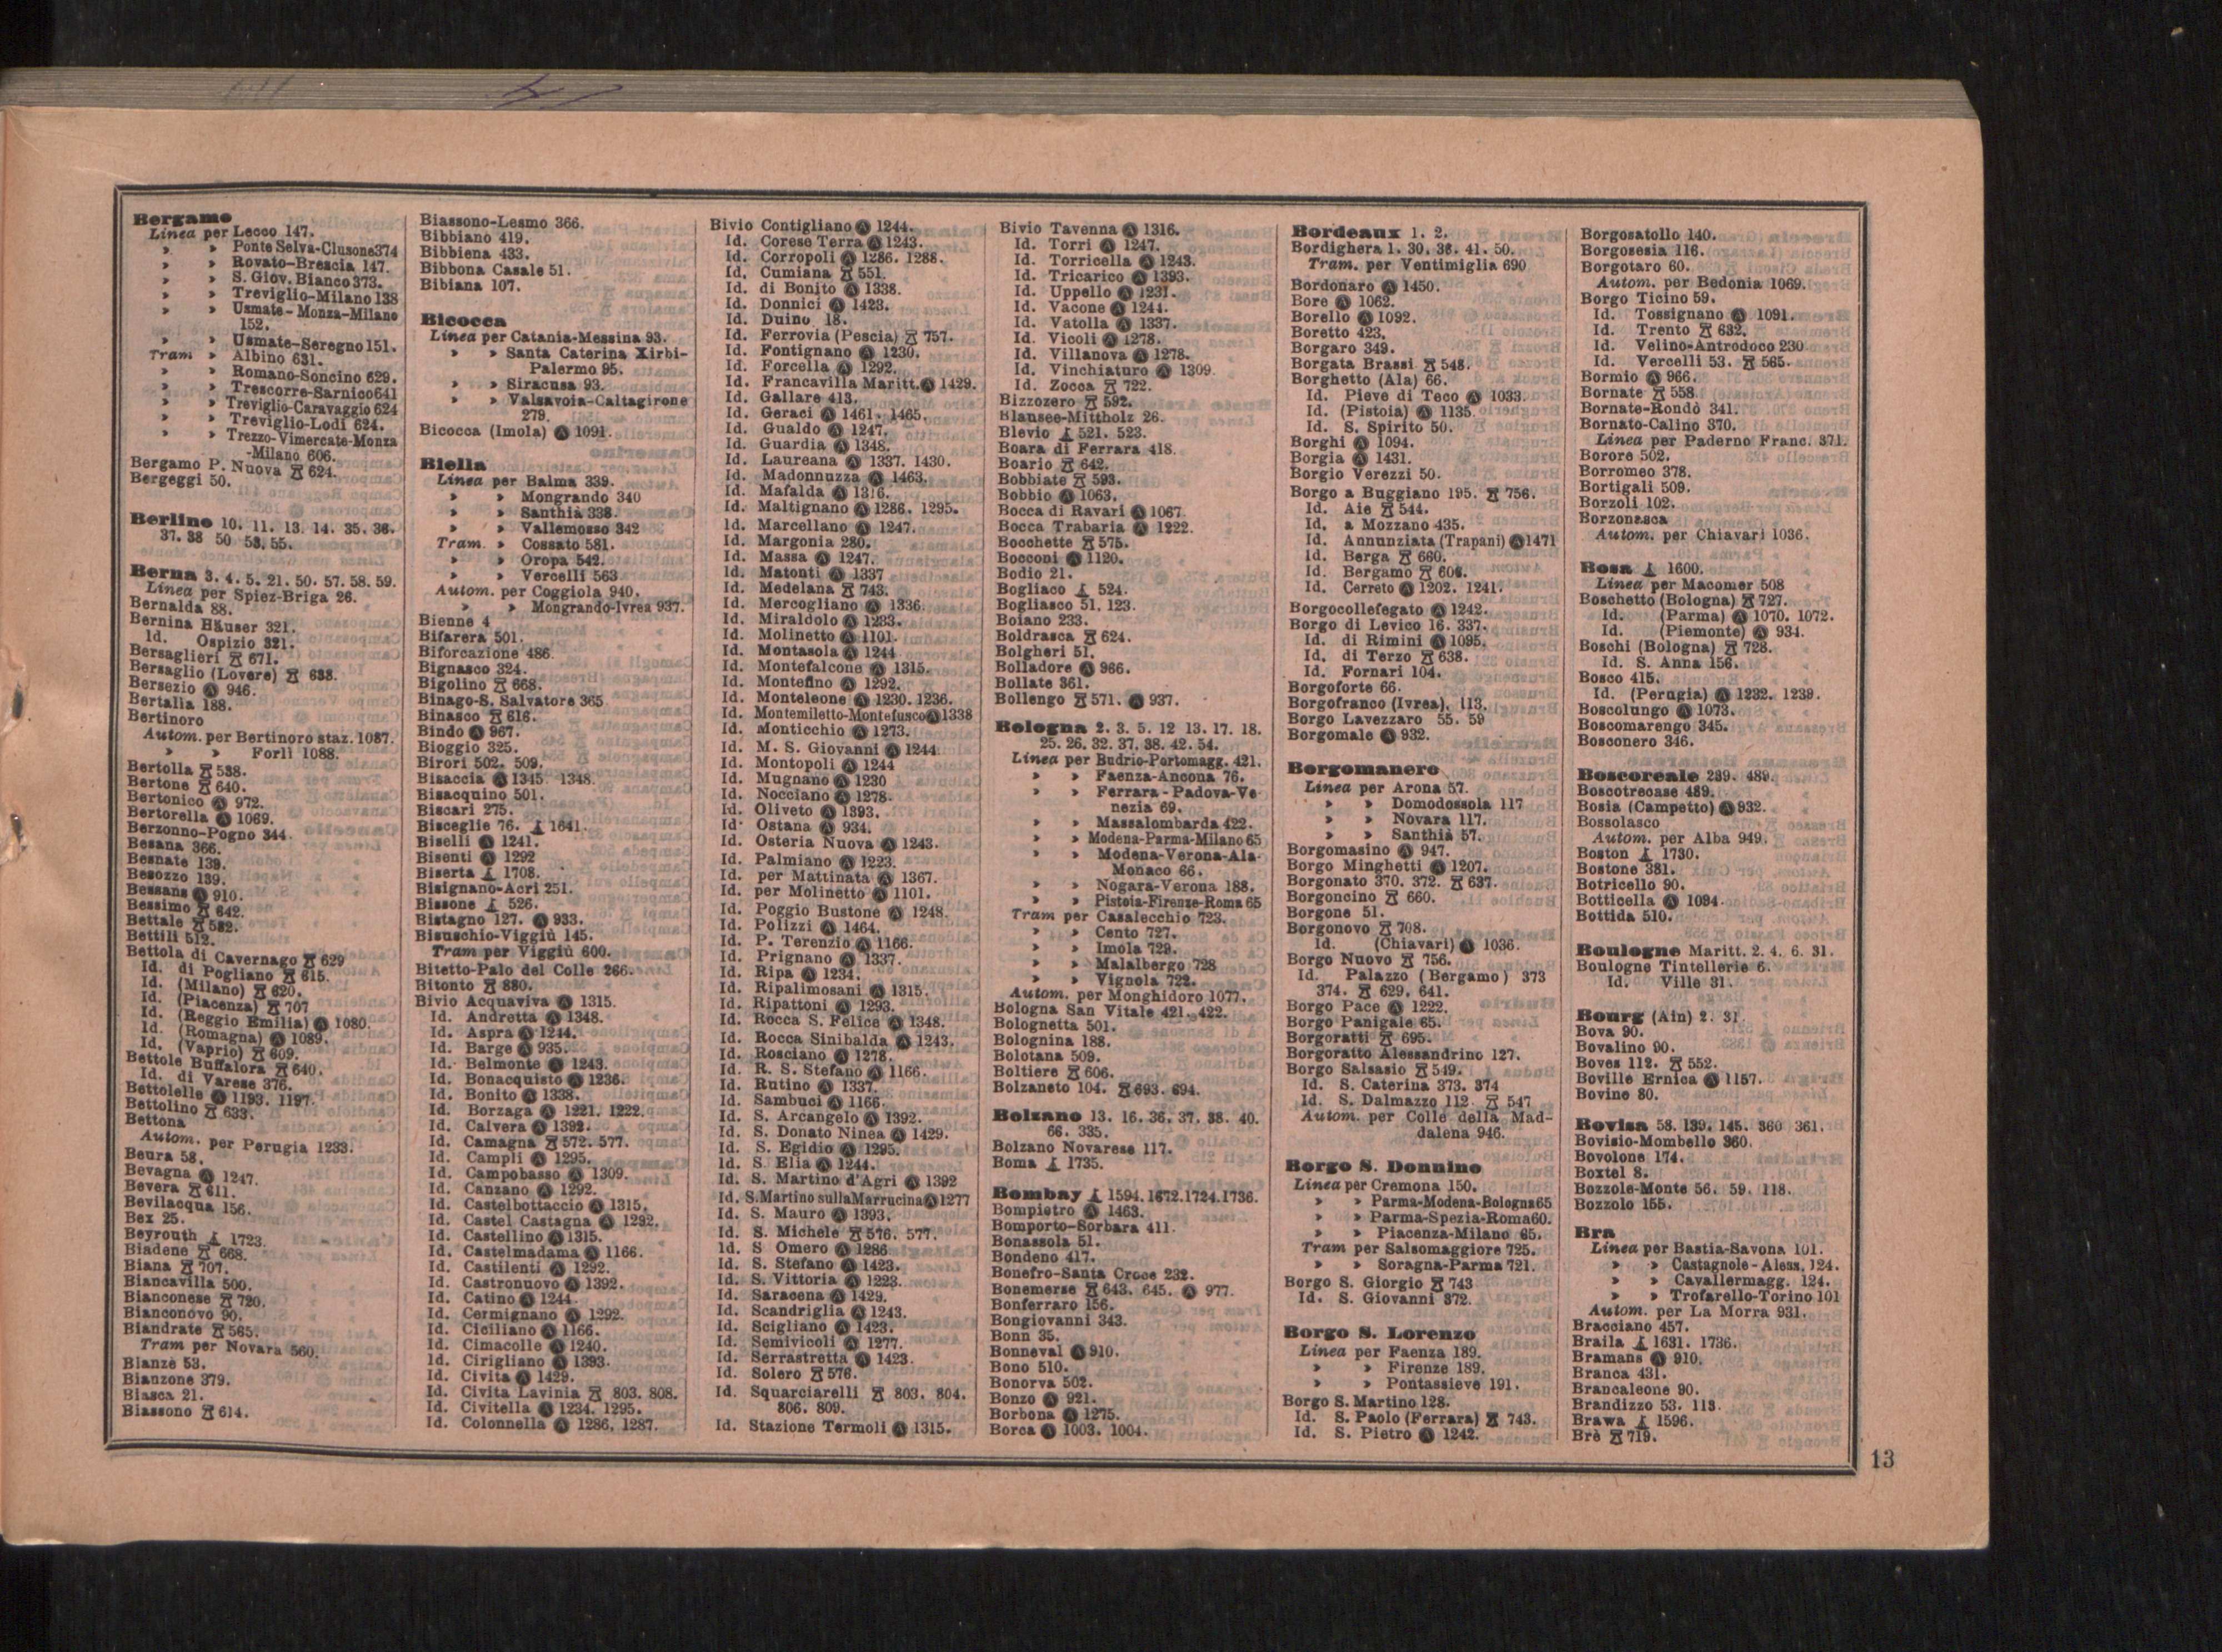 Bergamo
Linea per Lecco 147.
» » Ponte Selva-Clusone 374
» » Rovato-Brescia 147.
» » S. Giov. Bianco 373.
» » Treviglio-Milano 138
» » Usmate-Monza-Milano
152.
» » Usmate-Seregno 151.
Tram » Albino 631.
» » Romano-Soncino 629.
» » Trescorre-Sarnico 641
» » Treviglio-Caravaggio 624
» » Treviglio-Lodi 624.
» » Trezzo-Vimercate-Monza
-Milano 606.
Bergamo P. Nuova 624.
Bergeggi 50.
Berlino 10. 11. 13. 14. 35. 36.
37. 38 50 53. 55.
Berna 3. 4. 5. 21. 50. 57. 58. 59.
Linea per Spiez-Briga 26.
Bernalda 88.
Bernina Häuser 321.
Id. Ospizio 321.
Bersaglieri 671.
Bersaglio (Lovere) 638.
Bersezio Ⓐ 946.
Bertalia 188.
Bertinoro
Autom. per Bertinoro staz. 1087.
» » Forlì 1088.
Bertolla 538.
Bertone 640.
Bertonico Ⓐ 972.
Bertorella Ⓐ 1069.
Berzonno-Pogno 344.
Besana 366.
Besnate 139.
Besozzo 139.
Bessans Ⓐ 910.
Bessimo 642.
Bettale 582.
Bettili 512.
Bettola di Cavernago 629
Id. di Pogliano 615.
Id. (Milano) 620.
Id. (Piacenza) 707
Id. (Reggio Emilia) Ⓐ 1080.
Id. (Romagna) Ⓐ 1089.
Id. (Vaprio) 609.
Bettole Buffalora 640.
Id. di Varese 376.
Bettolelle Ⓐ 1193. 1197.
Bettolino 633.
Bettona
Autom. per Perugia 1233.
Beura 58.
Bevagna Ⓐ 1247.
Bevera 611.
Bevilacqua 156.
Bex 25.
Beyrouth 1723.
Biadene 668.
Biana 707.
Biancavilla 500.
Bianconese 720.
Bianconovo 90.
Biandrate 565.
Tram per Novara 560.
Bianzè 53.
Bianzone 379.
Biasca 21.
Biassono 614.
Biassono-Lesmo 366.
Bibbiano 419.
Bibbiena 433.
Bibbona Casale 51.
Bibiana 107.
Bicocca
Linea per Catania-Messina 93.
» » Santa Caterina Xirbi-
Palermo 95.
» » Siracusa 93.
» » Valsavoia-Caltagirone
279.
Bicocca (Imola) Ⓐ 1091.
Biella
Linea per Balma 339.
» » Mongrando 340
» » Santhià 338.
» » Vallemosso 342
Tram. » Cossato 581.
» » Oropa 542.
» » Vercelli 563
Autom. per Coggiola 940.
» » Mongrando-Ivrea 937.
Bienne 4
Bifarera 501.
Biforcazione 486.
Bignasco 324.
Bigolino 668.
Binago-S. Salvatore 365
Binasco 616.
Bindo Ⓐ 967.
Bioggio 325.
Birori 502. 509.
Bisaccia Ⓐ 1345. 1348.
Bisacquino 501.
Biscari 275.
Bisceglie 76. 1641.
Biselli Ⓐ 1241.
Bisenti Ⓐ 1292
Biserta 1708.
Bisignano-Acri 251.
Bissone 526.
Bistagno 127. Ⓐ 933.
Bisuschio-Viggiù 145.
Tram per Viggiù 600.
Bitetto-Palo del Colle 266.
Bitonto 880.
Bivio Acquaviva Ⓐ 1315.
Id. Andretta Ⓐ 1348.
Id. Aspra Ⓐ 1244.
Id. Barge Ⓐ 935.
Id. Belmonte Ⓐ 1243.
Id. Bonacquisto Ⓐ 1236.
Id. Bonito Ⓐ 1338.
Id. Borzaga Ⓐ 1221. 1222.
Id. Calvera Ⓐ 1392.
Id. Camagna 572. 577.
Id. Campli Ⓐ 1295.
Id. Campobasso Ⓐ 1309.
Id. Canzano Ⓐ 1292.
Id. Castelbottaccio Ⓐ 1315.
Id. Castel Castagna Ⓐ 1292.
Id. Castellino Ⓐ 1315.
Id. Castelmadama Ⓐ 1166.
Id. Castilenti Ⓐ 1292.
Id. Castronuovo Ⓐ 1392.
Id. Catino Ⓐ 1244.
Id. Cermignano Ⓐ 1292.
Id. Ciciliano Ⓐ 1166.
Id. Cimacolle Ⓐ 1240.
Id. Cirigliano Ⓐ 1393.
Id. Civita Ⓐ 1429.
Id. Civita Lavinia 803. 808.
Id. Civitella Ⓐ 1234. 1295.
Id. Colonnella Ⓐ 1286. 1287.
Bivio Contigliano Ⓐ 1244.
Id. Corese Terra Ⓐ 1243.
Id. Corropoli Ⓐ 1286. 1288.
Id. Cumiana 551.
Id. di Bonito Ⓐ 1338.
Id. Donnici Ⓐ 1423.
Id. Duino 18.
Id. Ferrovia (Pescia) 757.
Id. Fontignano Ⓐ 1230.
Id. Forcella Ⓐ 1292.
Id. Francavilla Maritt. Ⓐ 1429.
Id. Gallare 413.
Id. Geraci Ⓐ 1461. 1465.
Id. Gualdo Ⓐ 1247.
Id. Guardia Ⓐ 1348.
Id. Laureana Ⓐ 1337. 1430.
Id. Madonnuzza Ⓐ 1463.
Id. Mafalda Ⓐ 1316.
Id. Maltignano Ⓐ 1286. 1295.
Id. Marcellano Ⓐ 1247.
Id. Margonia 280.
Id. Massa Ⓐ 1247.
Id. Matonti Ⓐ 1337
Id. Medelana 743.
Id. Mercogliano Ⓐ 1336.
Id. Miraldolo Ⓐ 1283.
Id. Molinetto Ⓐ 1101.
Id. Montasola Ⓐ 1244
Id. Montefalcone Ⓐ 1315.
Id. Montefino Ⓐ 1292.
Id. Monteleone Ⓐ 1230. 1236.
Id. Montemiletto-Montefusco Ⓐ 1338
Id. Monticchio Ⓐ 1273.
Id. M. S. Giovanni Ⓐ 1244
Id. Montopoli Ⓐ 1244
Id. Mugnano Ⓐ 1230
Id. Nocciano Ⓐ 1278.
Id. Oliveto Ⓐ 1393.
Id. Ostana Ⓐ 934.
Id. Osteria Nuova Ⓐ 1243.
Id. Palmiano Ⓐ 1223.
Id. per Mattinata Ⓐ 1367.
Id. per Molinetto Ⓐ 1101.
Id. Poggio Bustone Ⓐ 1248.
Id. Polizzi Ⓐ 1464.
Id. P. Terenzio Ⓐ 1166.
Id. Prignano Ⓐ 1337.
Id. Ripa Ⓐ 1234.
Id. Ripalimosani Ⓐ 1315.
Id. Ripattoni Ⓐ 1293.
Id. Rocca S. Felice Ⓐ 1348.
Id. Rocca Sinibalda Ⓐ 1243.
Id. Rosciano Ⓐ 1278.
Id. R. S. Stefano Ⓐ 1166.
Id. Rutino Ⓐ 1337.
Id. Sambuci Ⓐ 1166.
Id. S. Arcangelo Ⓐ 1392.
Id. S. Donato Ninea Ⓐ 1429.
Id. S. Egidio Ⓐ 1295.
Id. S. Elia Ⓐ 1244.
Id. S. Martino d'Agri Ⓐ 1392
Id. S. Martino sulla Marrucina Ⓐ 1277
Id. S. Mauro Ⓐ 1393.
Id. S. Michele 576. 577.
Id. S Omero Ⓐ 1286
Id. S. Stefano Ⓐ 1423.
Id. S. Vittoria Ⓐ 1223.
Id. Saracena Ⓐ 1429.
Id. Scandriglia Ⓐ 1243.
Id. Scigliano Ⓐ 1423.
Id. Semivicoli Ⓐ 1277.
Id. Serrastretta Ⓐ 1423.
Id. Solero 576.
Id. Squarciarelli 803. 804.
806. 809.
Id. Stazione Termoli Ⓐ 1315.
Bivio Tavenna Ⓐ 1316.
Id. Torri Ⓐ 1247.
Id. Torricella Ⓐ 1243.
Id. Tricarico Ⓐ 1393.
Id. Uppello Ⓐ 1231.
Id. Vacone Ⓐ 1244.
Id. Vatolla Ⓐ 1337.
Id. Vicoli Ⓐ 1278.
Id. Villanova Ⓐ 1278.
Id. Vinchiaturo Ⓐ 1309.
Id. Zocca 722.
Bizzozero 592.
Blausee-Mittholz 26.
Blevio 521. 523.
Boara di Ferrara 418.
Boario 642.
Bobbiate 593.
Bobbio Ⓐ 1063.
Bocca di Ravari Ⓐ 1067.
Bocca Trabaria Ⓐ 1222.
Bocchette 575.
Bocconi Ⓐ 1120.
Bodio 21.
Bogliaco 524.
Bogliasco 51. 123.
Boiano 233.
Boldrasca 624.
Bolgheri 51.
Bolladore Ⓐ 966.
Bollate 361.
Bollengo 571. Ⓐ 937.
Bologna 2. 3. 5. 12 13. 17. 18.
25. 26. 32. 37. 38. 42. 54.
Linea per Budrio-Portomagg. 421.
» » Faenza-Ancona 76.
» » Ferrara-Padova-Ve
nezia 69.
» » Massalombarda 422.
» » Modena-Parma-Milano 65
» » Modena-Verona-Ala-
Monaco 66.
» » Nogara-Verona 188.
» » Pistoia-Firenze-Roma 65
Tram per Casalecchio 723.
» » Cento 727.
» » Imola 729.
» » Malalbergo 728
» » Vignola 722.
Autom. per Monghidoro 1077.
Bologna San Vitale 421. 422.
Bolognetta 501.
Bolognina 188.
Bolotana 509.
Boltiere 606.
Bolzaneto 104. 693. 694.
Bolzano 13. 16. 36. 37. 38. 40.
66. 335.
Bolzano Novarese 117.
Boma 1735.
Bombay 1594. 1672. 1724. 1736.
Bompietro Ⓐ 1463.
Bomporto-Sorbara 411.
Bonassola 51.
Bondeno 417.
Bonefro-Santa Croce 232.
Bonemerse 643. 645. Ⓐ 977.
Bonferraro 156.
Bongiovanni 343.
Bonn 35.
Bonneval Ⓐ 910.
Bono 510.
Bonorva 502.
Bonzo Ⓐ 921.
Borbona Ⓐ 1275.
Borca Ⓐ 1003. 1004.
Bordeaux 1. 2.
Bordighera 1. 30. 38. 41. 50.
Tram. per Ventimiglia 690
Bordonaro Ⓐ 1450.
Bore Ⓐ 1062.
Borello Ⓐ 1092.
Boretto 423.
Borgaro 349.
Borgata Brassi 548.
Borghetto (Ala) 66.
Id. Pieve di Teco Ⓐ 1033.
Id. (Pistoia) Ⓐ 1135.
Id. S. Spirito 50.
Borghi Ⓐ 1094.
Borgia Ⓐ 1431.
Borgio Verezzi 50.
Borgo a Buggiano 195. 756.
Id. Aie 544.
Id. a Mozzano 435.
Id. Annunziata (Trapani) Ⓐ 1471
Id. Berga 660.
Id. Bergamo 606.
Id. Cerreto Ⓐ 1202. 1241.
Borgocollefegato Ⓐ 1242.
Borgo di Levico 16. 337.
Id. di Rimini Ⓐ 1095.
Id. di Terzo 638.
Id. Fornari 104.
Borgoforte 66.
Borgofranco (Ivrea). 113.
Borgo Lavezzaro 55. 59
Borgomale Ⓐ 932.
Borgomanero
Linea per Arona 57.
» » Domodossola 117
» » Novara 117.
» » Santhià 57.
Borgomasino Ⓐ 947.
Borgo Minghetti Ⓐ 1207.
Borgonato 370. 372. 637.
Borgoncino 660.
Borgone 51.
Borgonovo 708.
Id. (Chiavari) Ⓐ 1036.
Borgo Nuovo 756.
Id. Palazzo (Bergamo) 373
374. 629. 641.
Borgo Pace Ⓐ 1222.
Borgo Panigale 65.
Borgoratti 695.
Borgoratto Alessandrino 127.
Borgo Salsasio 549.
Id. S. Caterina 373. 374
Id. S. Dalmazzo 112. 547
Autom. per Colle della Mad-
dalena 946.
Borgo S. Donnino
Linea per Cremona 150.
» » Parma-Modena-Bologna 65
» » Parma-Spezia-Roma 60.
» » Piacenza-Milano 65.
Tram per Salsomaggiore 725.
» » Soragna-Parma 721.
Borgo S. Giorgio 743
Id. S. Giovanni 372.
Borgo S. Lorenzo
Linea per Faenza 189.
» » Firenze 189.
» » Pontassieve 191.
Borgo S. Martino 128.
Id. S. Paolo (Ferrara) 743.
Id. S. Pietro Ⓐ 1242.
Borgosatollo 140.
Borgosesia 116.
Borgotaro 60.
Autom. per Bedonia 1069.
Borgo Ticino 59.
Id. Tossignano Ⓐ 1091.
Id. Trento 632.
Id. Velino-Antrodoco 230
Id. Vercelli 53. 565.
Bormio Ⓐ 966.
Bornate 558.
Bornate-Rondò 341.
Bornato-Calino 370.
Linea per Paderno Franc. 371.
Borore 502.
Borromeo 378.
Bortigali 509.
Borzoli 102.
Borzonasca
Autom. per Chiavari 1036.
Bosa 1600.
Linea per Macomer 508
Boschetto (Bologna) 727.
Id. (Parma) Ⓐ 1070. 1072.
Id. (Piemonte) Ⓐ 934.
Boschi (Bologna) 728.
Id. S. Anna 156.
Bosco 415.
Id. (Perugia) Ⓐ 1232. 1239.
Boscolungo Ⓐ 1073.
Boscomarengo 345.
Bosconero 346.
Boscoreale 239. 489.
Boscotrecase 489.
Bosia (Campetto) Ⓐ 932.
Bossolasco
Autom. per Alba 949.
Boston 1730.
Bostone 381.
Botricello 90.
Botticella Ⓐ 1084.
Bottida 510.
Boulogne Maritt. 2. 4. 6. 31.
Boulogne Tintellerie 6.
Id. Ville 31.
Bourg (Ain) 2. 31.
Bova 90.
Bovalino 90.
Boves 112. 552.
Boville Ernica Ⓐ 1157.
Bovino 80.
Bovisa 58. 139. 145. 360 361.
Bovisio-Mombello 360.
Bovolone 174.
Boxtel 8.
Bozzole-Monte 56. 59. 118.
Bozzolo 155.
Bra
Linea per Bastia-Savona 101.
» » Castagnole-Aless. 124.
» » Cavallermagg. 124.
» » Trofarello-Torino 101
Autom. per La Morra 931.
Bracciano 457.
Braila 1631. 1736.
Bramans Ⓐ 910.
Branca 431.
Brancaleone 90.
Brandizzo 53. 113.
Brawa 1596.
Brè 719.
13